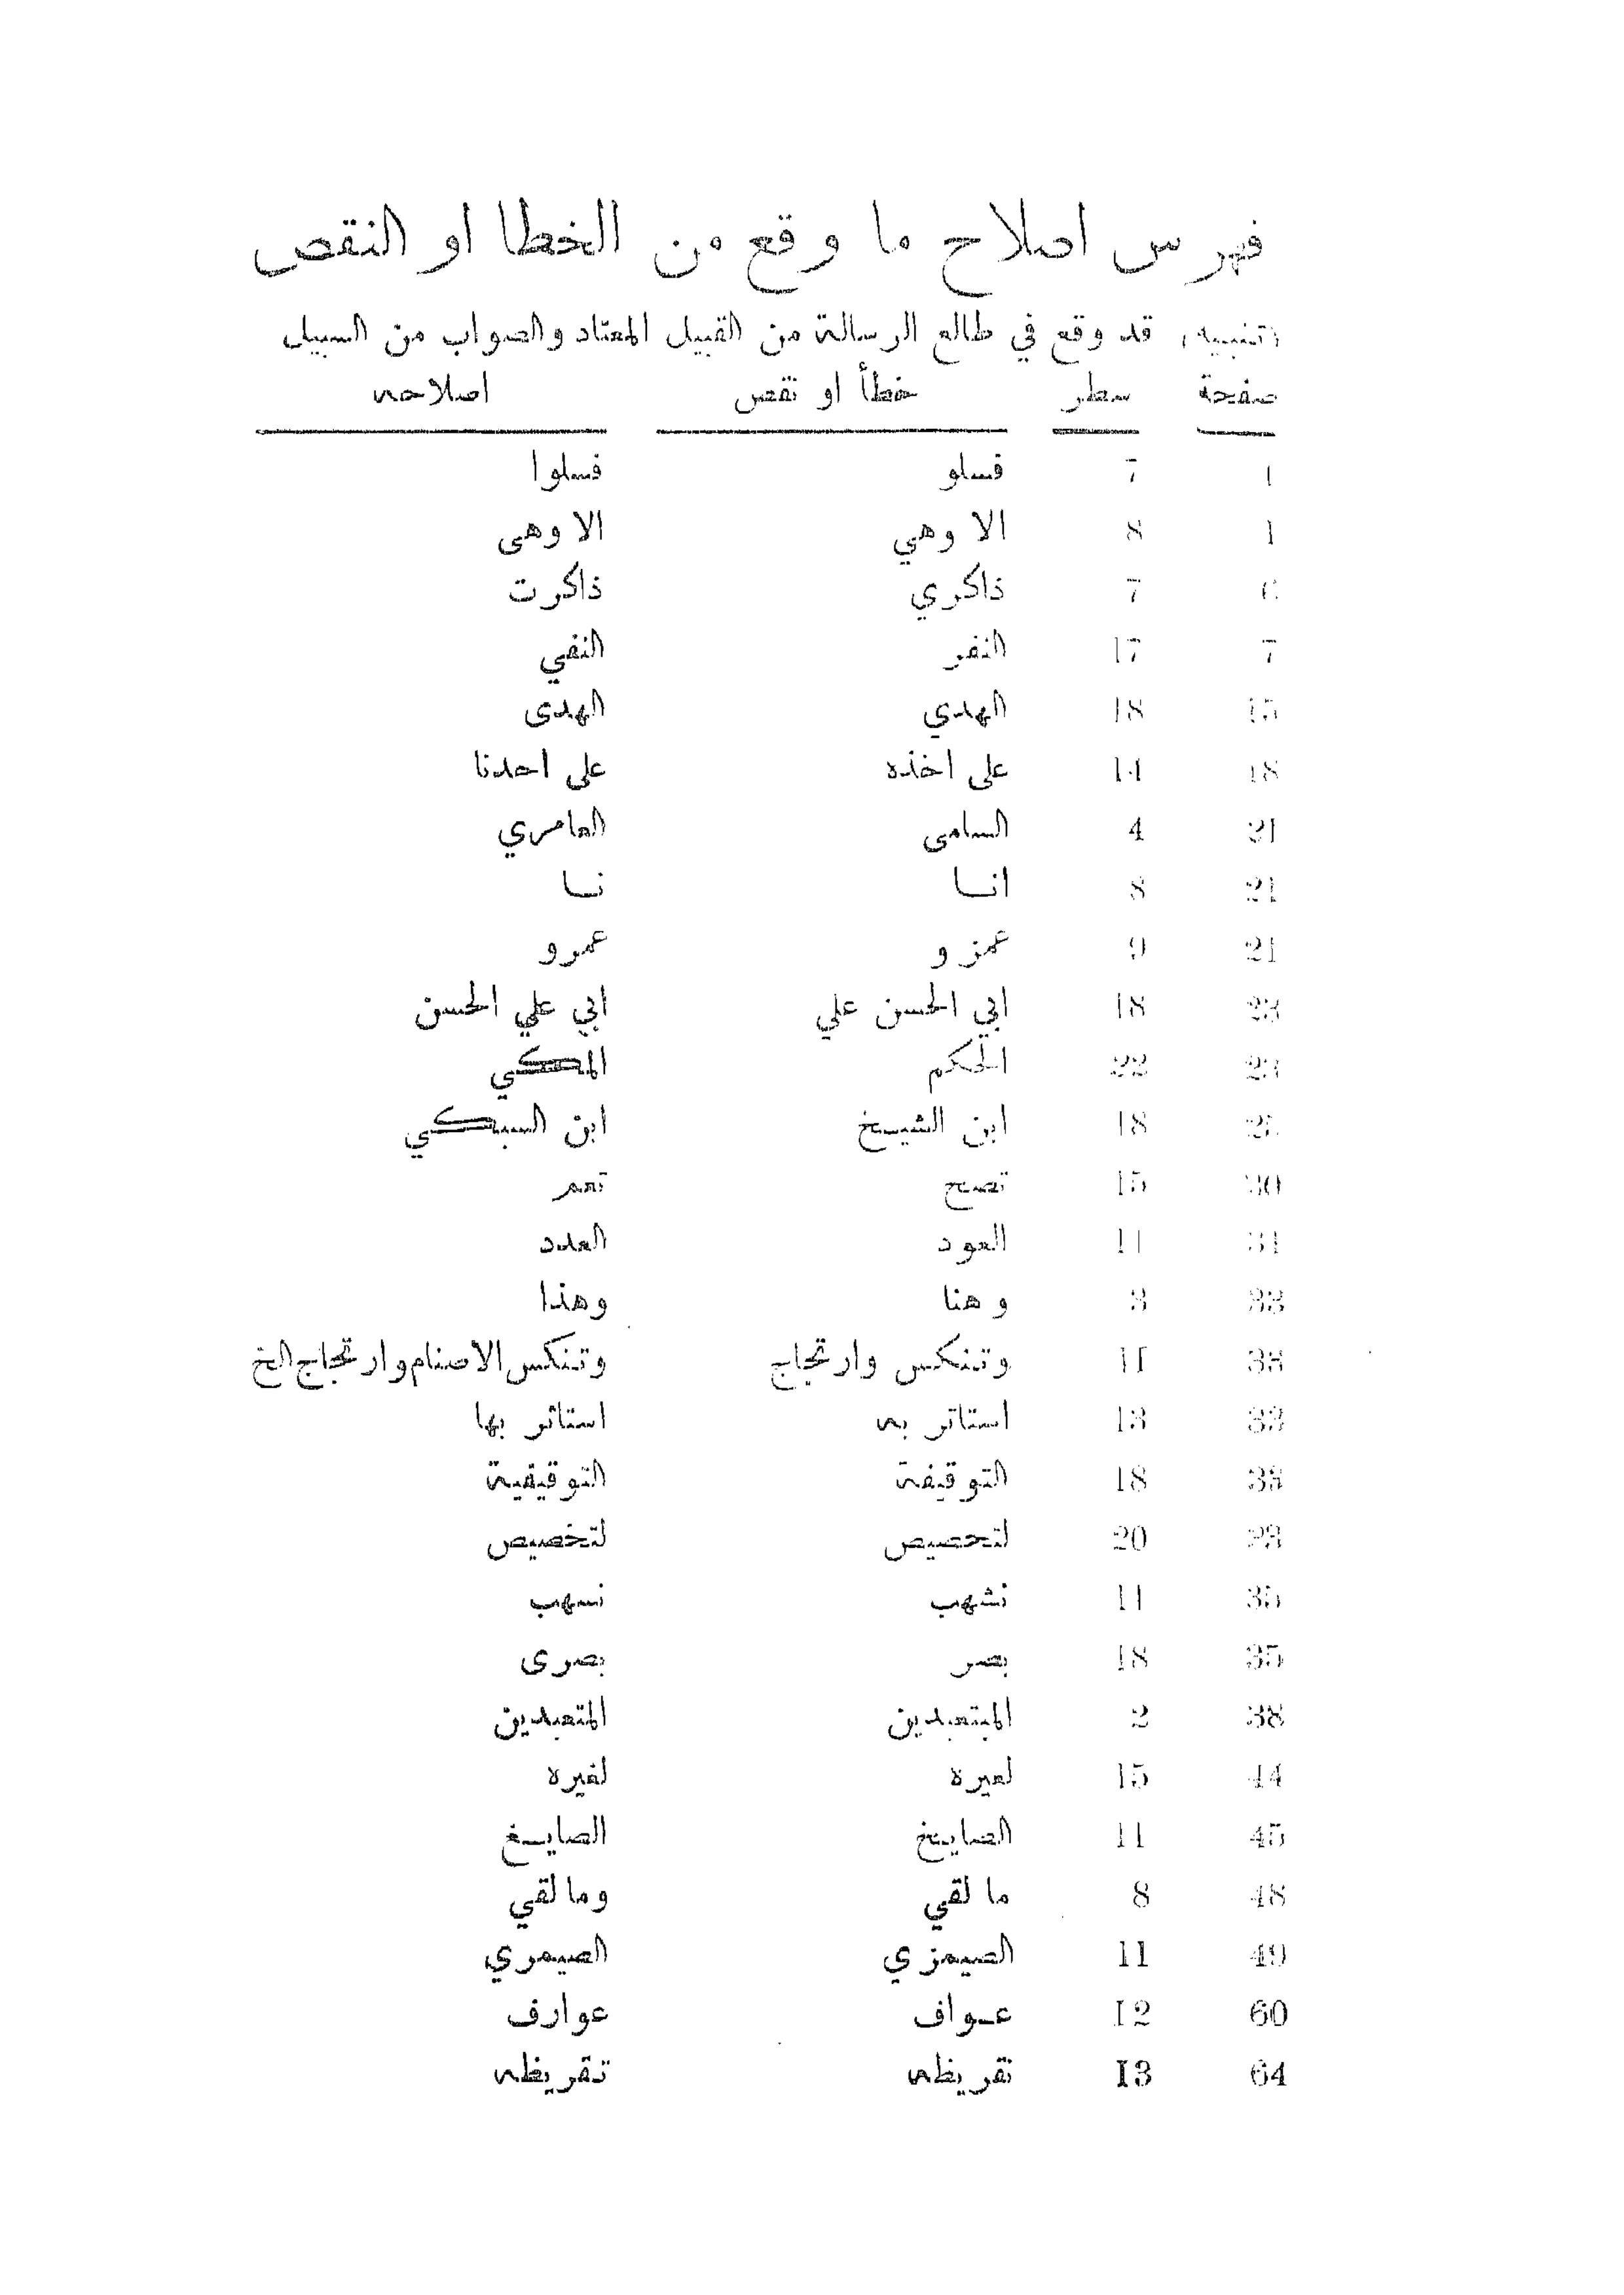 فهرس اصلاح ما وقع من الخطا او النقص
(تنبيه) قد وقع في طالع الرسالة من القبيل المعتاد والصواب من السبيل
صفحة سطر خطأ او نقص اصلاحه
1 7 فسلو فسلوا
1 8 الا وهي الا وهى
6 7 ذاكري ذاكرت
7 17 النفر النفي
15 18 الهدي الهدى
18 14 على اخذه على احدنا
21 4 السامى العامري
21 8 انسا نسا
21 9 عمزو عمرو
23 18 ابي الحسن علي ابي علي الحسن
23 22 الحكم المكي
18 ابن الشيخ ابن السبكي
30 15 تصح تعم
31 11 العود العدد
33 3 وهنا وهذا
33 11 وتنكس وارتجاج وتنكس الاصنام وارتجاج الخ
33 13 استاتر به استاثر بها
33 18 التوقيفة التوقيفية
20 لتحصيص لتخصيص
35 11 نشهب نسهب
35 18 بصر بصرى
38 2 المبتعبدين المتعبدين
44 15 لعيره لغيره
45 11 الصايخ الصايغ
48 8 ما لقي وما لقي
49 11 الصيمزي الصيمري
60 12 عواف عوارف
64 13 نقريظه تقريظه